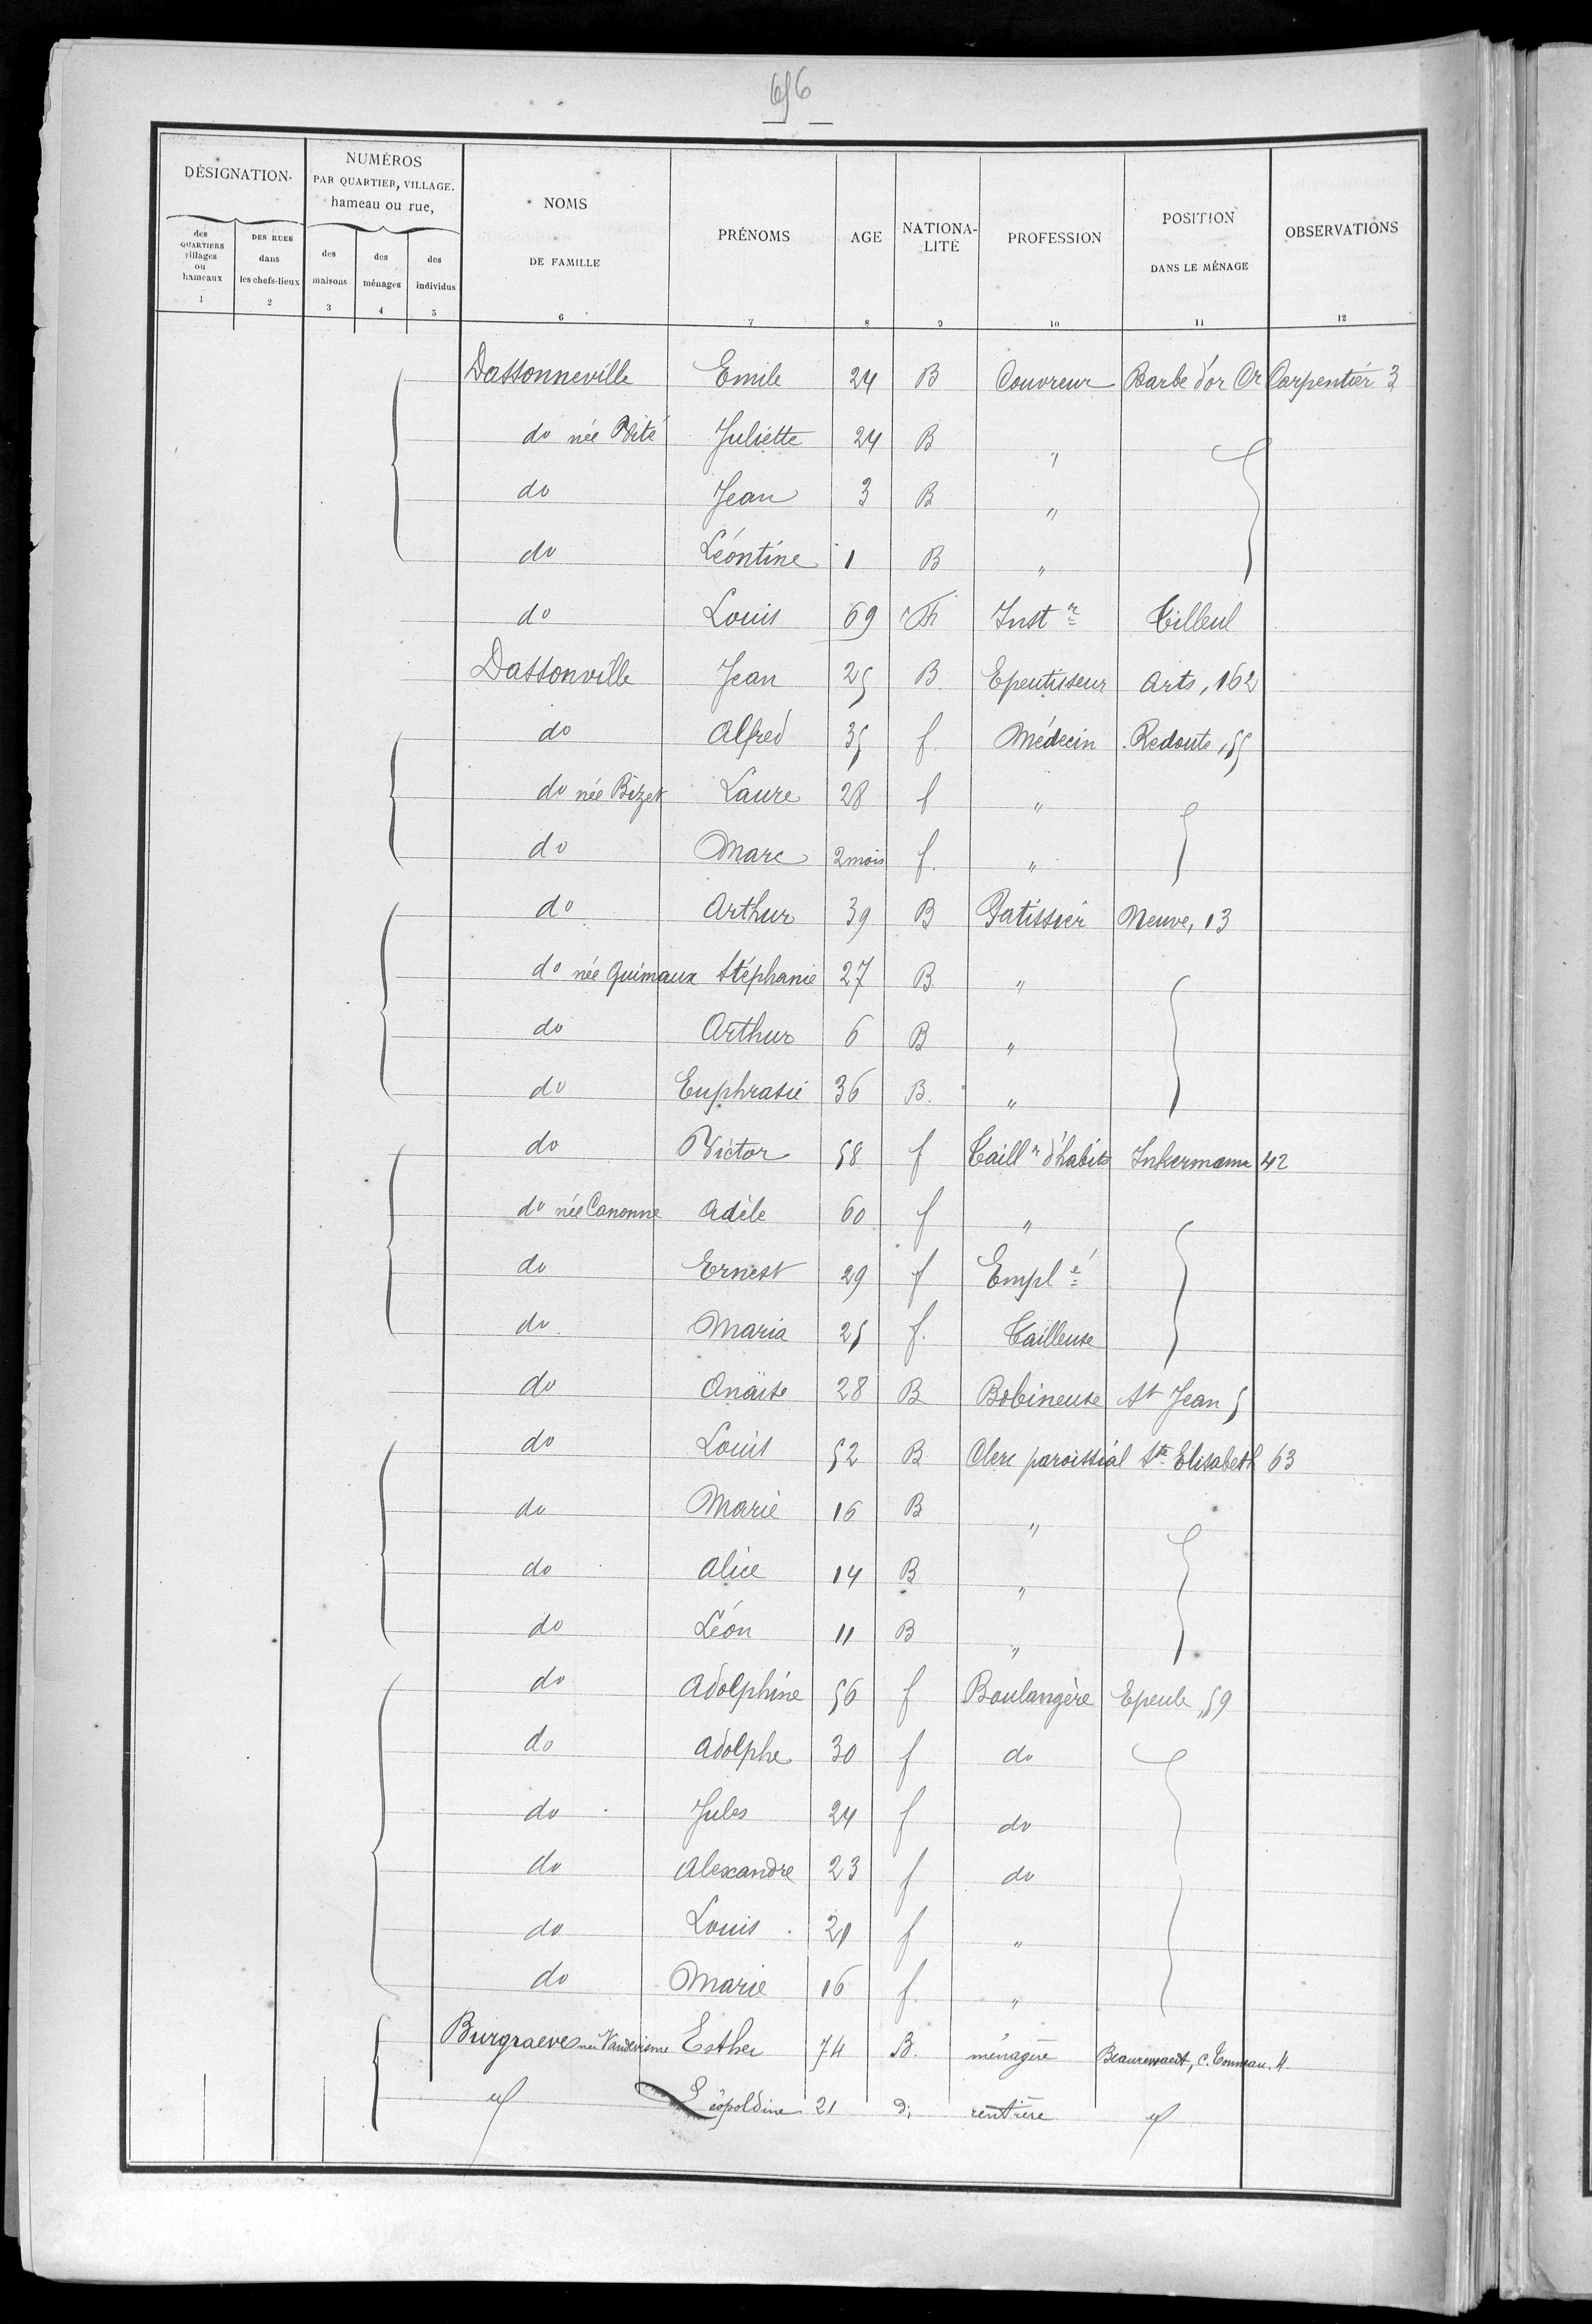 656
DÉSIGNATION
NUMÉROS PAR QUARTIER, VILLAGE. hameau ou rue,
NOMS DE FAMILLE
PRÉNOMS
AGE
NATIONA-LITÉ
PROFESSION
POSITION DANS LE MÉNAGE
OBSERVATIONS
des QUARTIERS villages ou hameaux
DES RUES dans les chefs-lieux
des maisons
des ménages
des individus
1 2 3 4 5 6 7 8 9 10 11 12
Dassonneville Emile 24 B Couvreur Barbe d'or Cr Carpentier 3
do née Vité Juliette 24 B "
do Jean 3 B "
do Léontine 1 B "
do Louis 69 Instr Tilleul
Dassonville Jean 25 B Epeutisseur Arts, 162
do Alfred 35 f Médecin Redoute, 55
do née Bizet Laure 28 f "
do Marc 2 mois f. "
do Arthur 39 B Patissier Neuve, 13
do née Guimaux Stéphanie 27 B "
do Arthur 6 B "
do Euphrasie 36 B. "
do Victor 58 f Taillr d'habits Inkermann 42
do née Canonne Adèle 60 f "
do Ernest 29 f Emplé
do Maria 25 f. Tailleuse
do Anaïse 28 B Bobineuse St Jean 5
do Louis 52 B Clerc paroissial Ste Elisabeth 63
do Marie 16 B "
do Alice 14 B "
do Léon 11 B "
do Adolphine 56 f Boulangère Epeule, 59
do Adolphe 30 f do
do Jules 24 f do
do Alexandre 23 f do
do Louis 21 f "
do Marie 16 f. "
Burgraeve née Esther 74 B. ménagère Beaurewaert, c. 4.
Léopoldine 21 d: rentière